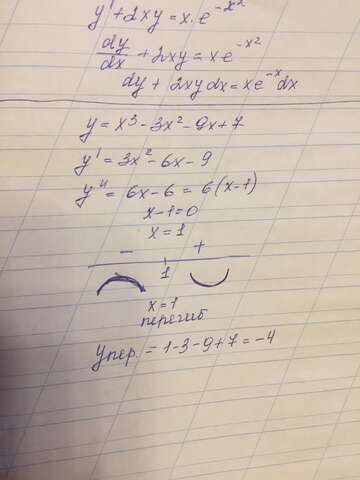 y' + 2xy = x·e^{-x²}
dy/dx + 2xy = xe^{-x²}
dy + 2xy dx = xe^{-x}dx
y = x³ - 3x² - 9x + 7
y' = 3x² - 6x - 9
y'' = 6x - 6 = 6(x-1)
x-1=0
x=1
- +
1
x=1
перегиб
y пер. = 1-3-9+7=-4